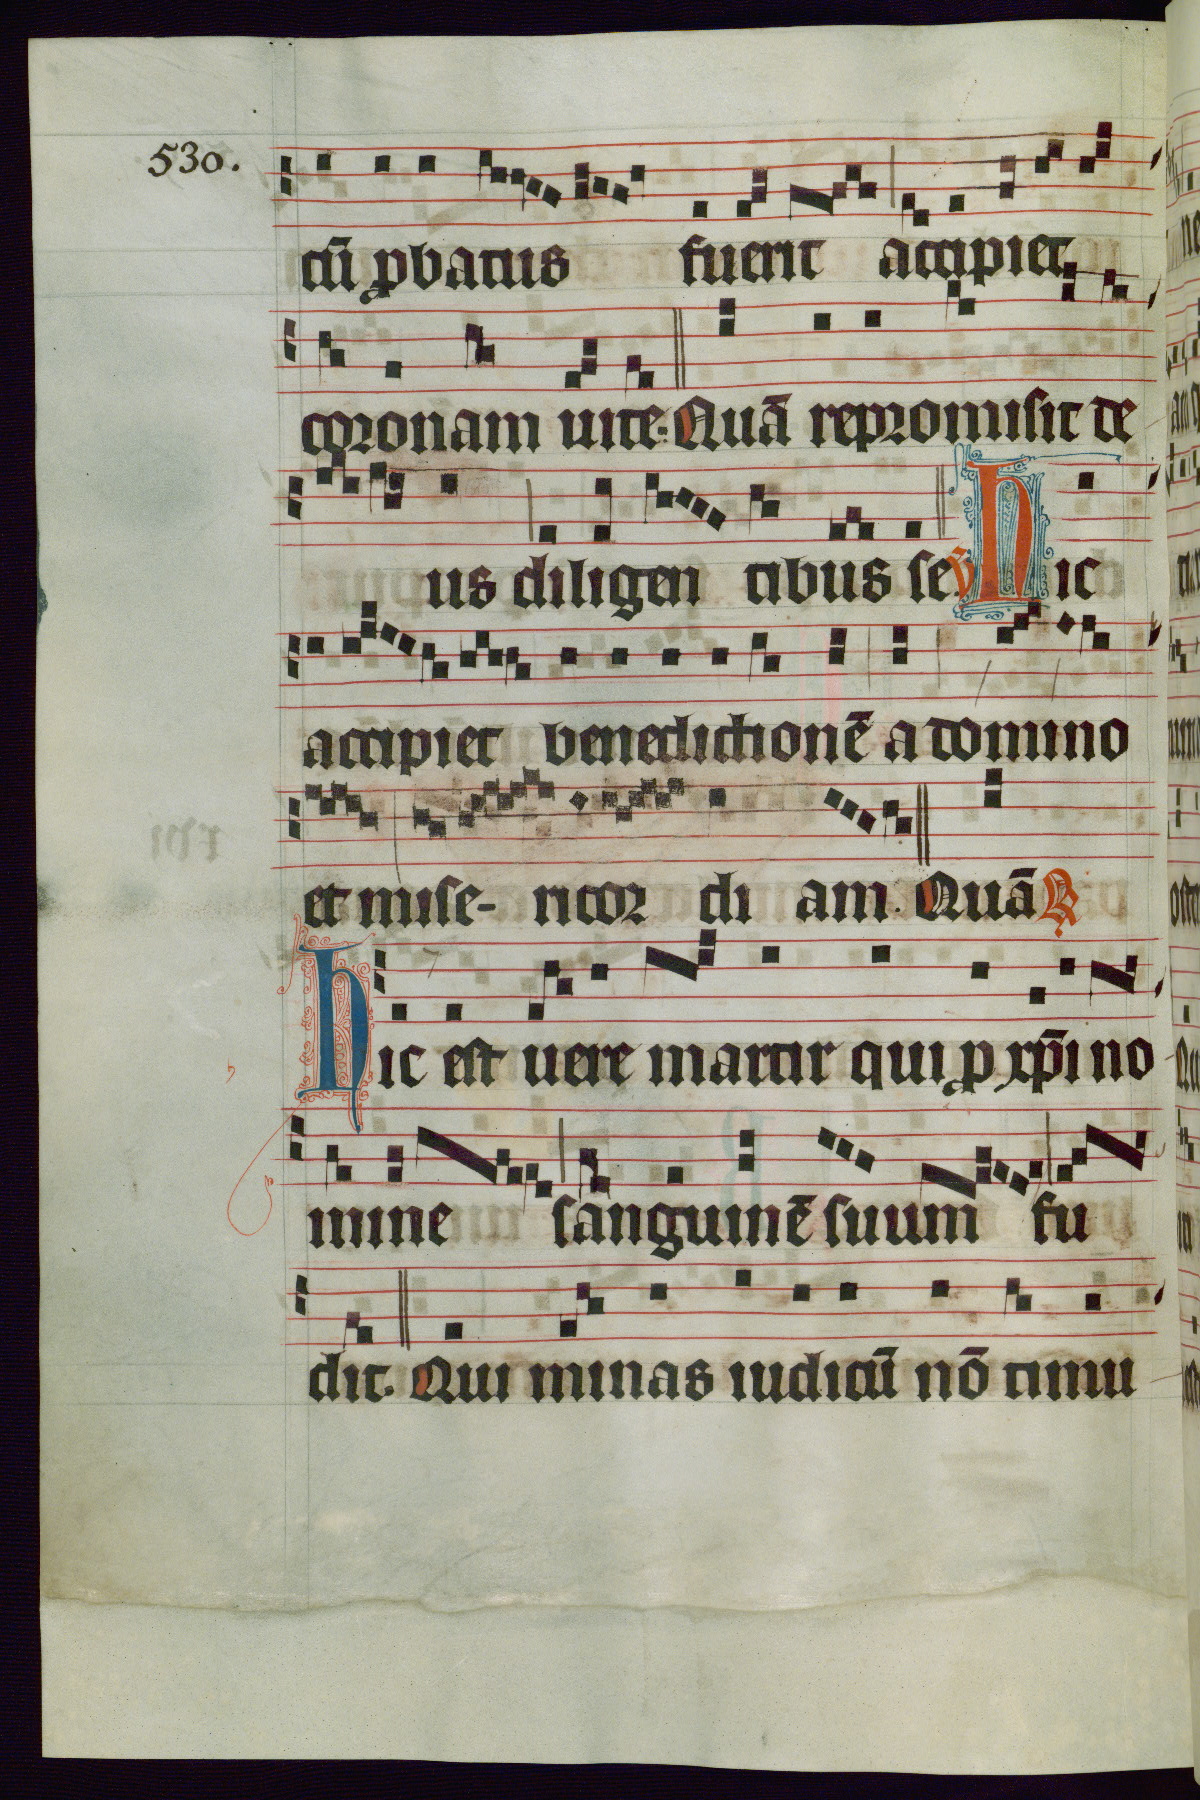 530.
cū ꝓbatus fuerit accipiet
coronam uite. Quā repromisit de
us diligen tibus se. ℣ Hic
accipiet benedictionē a domino
et mise- ricor di am. Quā ℟
Hic est uere martir qui ꝓ xp̄i no
mine sanguinē suum fu
dit. Qui minas iudicū nō timu